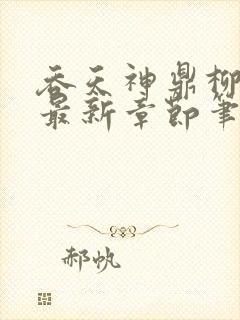 吞天神鼎柳
最新章节笔
郝帆